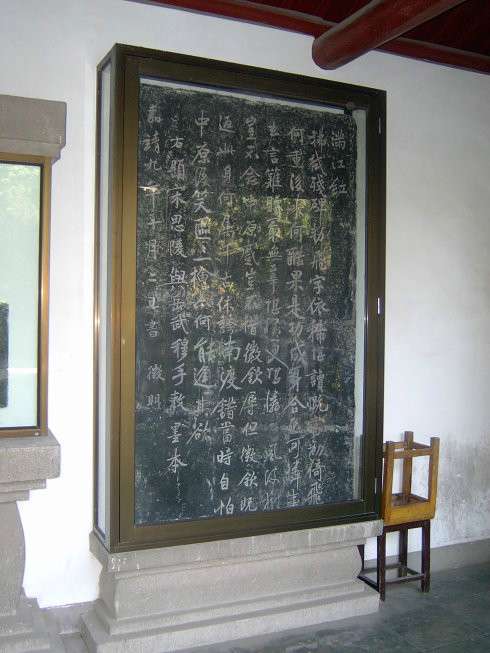 滿江紅
拂拭殘碑勅飛字依稀堪讀慨當初倚飛
何重後來何酷果是功成身合死可憐事
去言難贖最無辜堪恨又堪憐風波獄
豈不念中原蹙豈不惜徽欽辱但徽欽既
返此身何屬千古休誇南渡錯當時自怕
中原復笑區區一檜亦何能逢其欲
右題宋思陵與岳武穆手敕墨本
嘉靖九年十月二日書 徵明